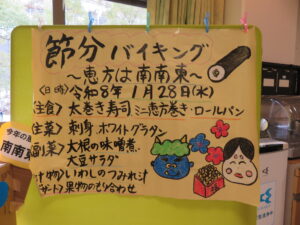 節分バイキング
～恵方は南南東～
〈日時〉令和8年1月28日(水)
〈主食〉太巻き寿司 ミニ恵方巻き・ロールパン
〈主菜〉刺身 ホワイトグラタン
〈副菜〉大根の味噌煮
大豆サラダ
〈汁物〉いわしのつみれ汁
〈デザート〉果物のもり合わせ
今年の
南南東